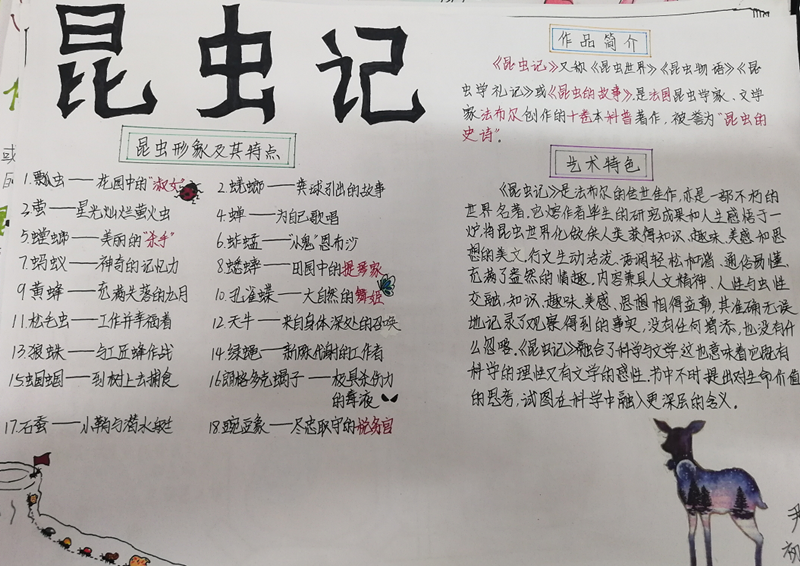 昆虫记
作品简介
《昆虫记》又称《昆虫世界》《昆虫物语》《昆
虫学札记》或《昆虫的故事》，是法国昆虫学家、文学
家法布尔创作的十卷本科普著作，被誉为"昆虫的
史诗"。
昆虫形象及其特点
1.瓢虫——花园中的"淑女"
2.蜣螂——粪球引出的故事
3.萤——星光灿烂萤火虫
4.蝉——为自己歌唱
5.螳螂——美丽的"杀手"
6.蚱蜢——"小鬼"恩布沙
7.蚂蚁——神奇的记忆力
8.蟋蟀——田园中的提琴家
9.黄蜂——充满失落的九月
10.孔雀蝶——大自然的舞姬
11.松毛虫——工作并幸福着
12.天牛——来自身体深处的召唤
13.狼蛛——与工匠蜂作战
14.绿蝇——新陈代谢的工作者
15.蝈蝈——到树上去捕食
16.朗格多克蝎子——极具杀伤力
的毒液
17.石蚕——小鞘与潜水艇
18.豌豆象——尽忠职守的税务官
艺术特色
《昆虫记》是法布尔的传世佳作，亦是一部不朽的
世界名著。它熔作者毕生的研究成果和人生感悟于一
炉，将昆虫世界化做供人类获得知识、趣味、美感和思
想的美文。行文生动活泼，语调轻松和谐、通俗易懂，
充满了盎然的情趣。内容兼具人文精神，人性与虫性
交融，知识、趣味、美感、思想相得益彰，其准确无误
地记录了观察得到的事实，没有任何增添，也没有什
么忽略。《昆虫记》融合了科学与文学，这也意味着它既有
科学的理性又有文学的感性。书中不时提出对生命价值
的思考，试图在科学中融入更深层的含义。